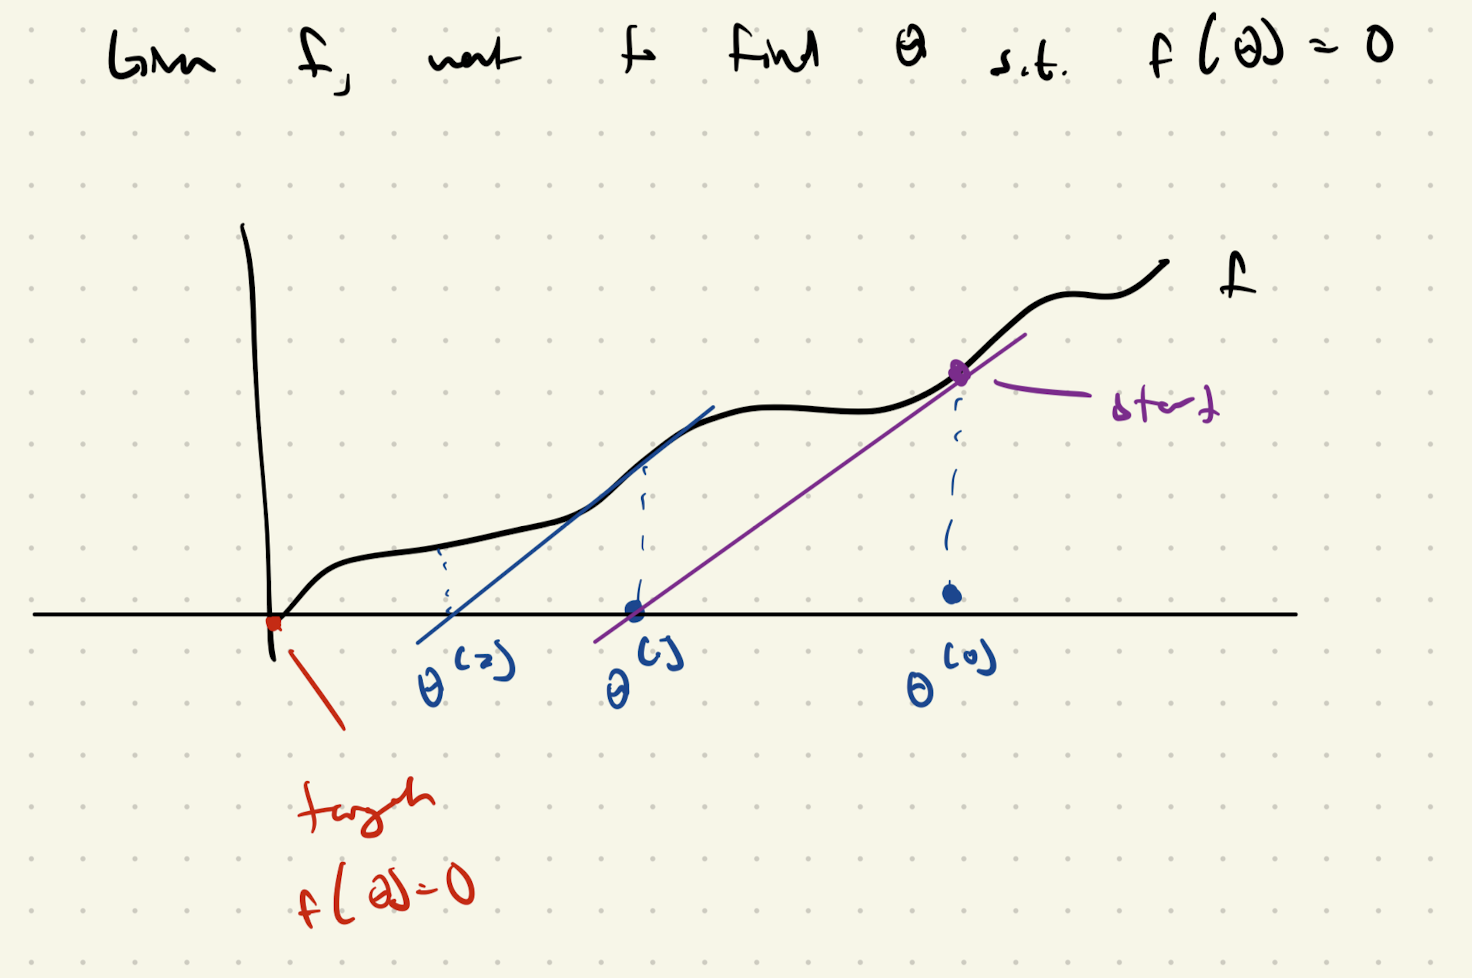 Given f, want to find θ s.t. f(θ) = 0
f
start
θ^(2) θ^(1) θ^(0)
target
f(θ)=0